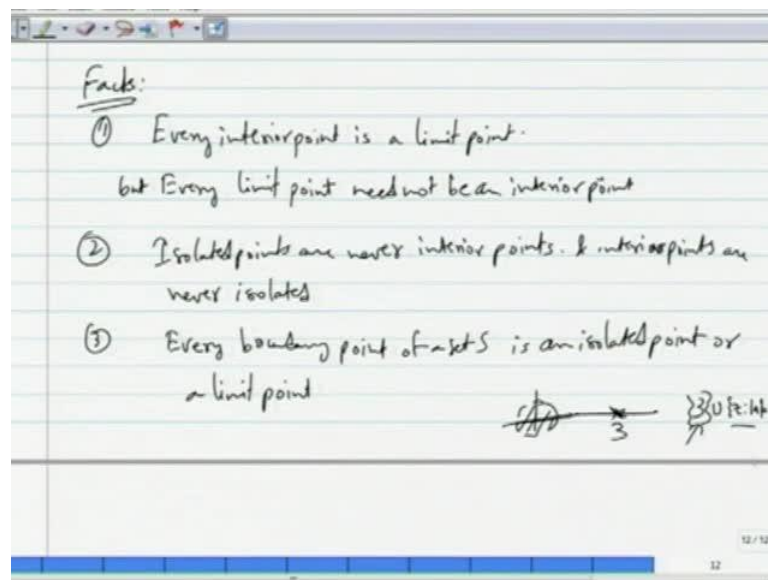 Facts:
① Every interior point is a limit point.
but Every limit point need not be an interior point
② Isolated points are never interior points. & interior points are
never isolated
③ Every boundary point of a set S is an isolated point or
a limit point
3 {3} ∪ {z:
12 / 12
12